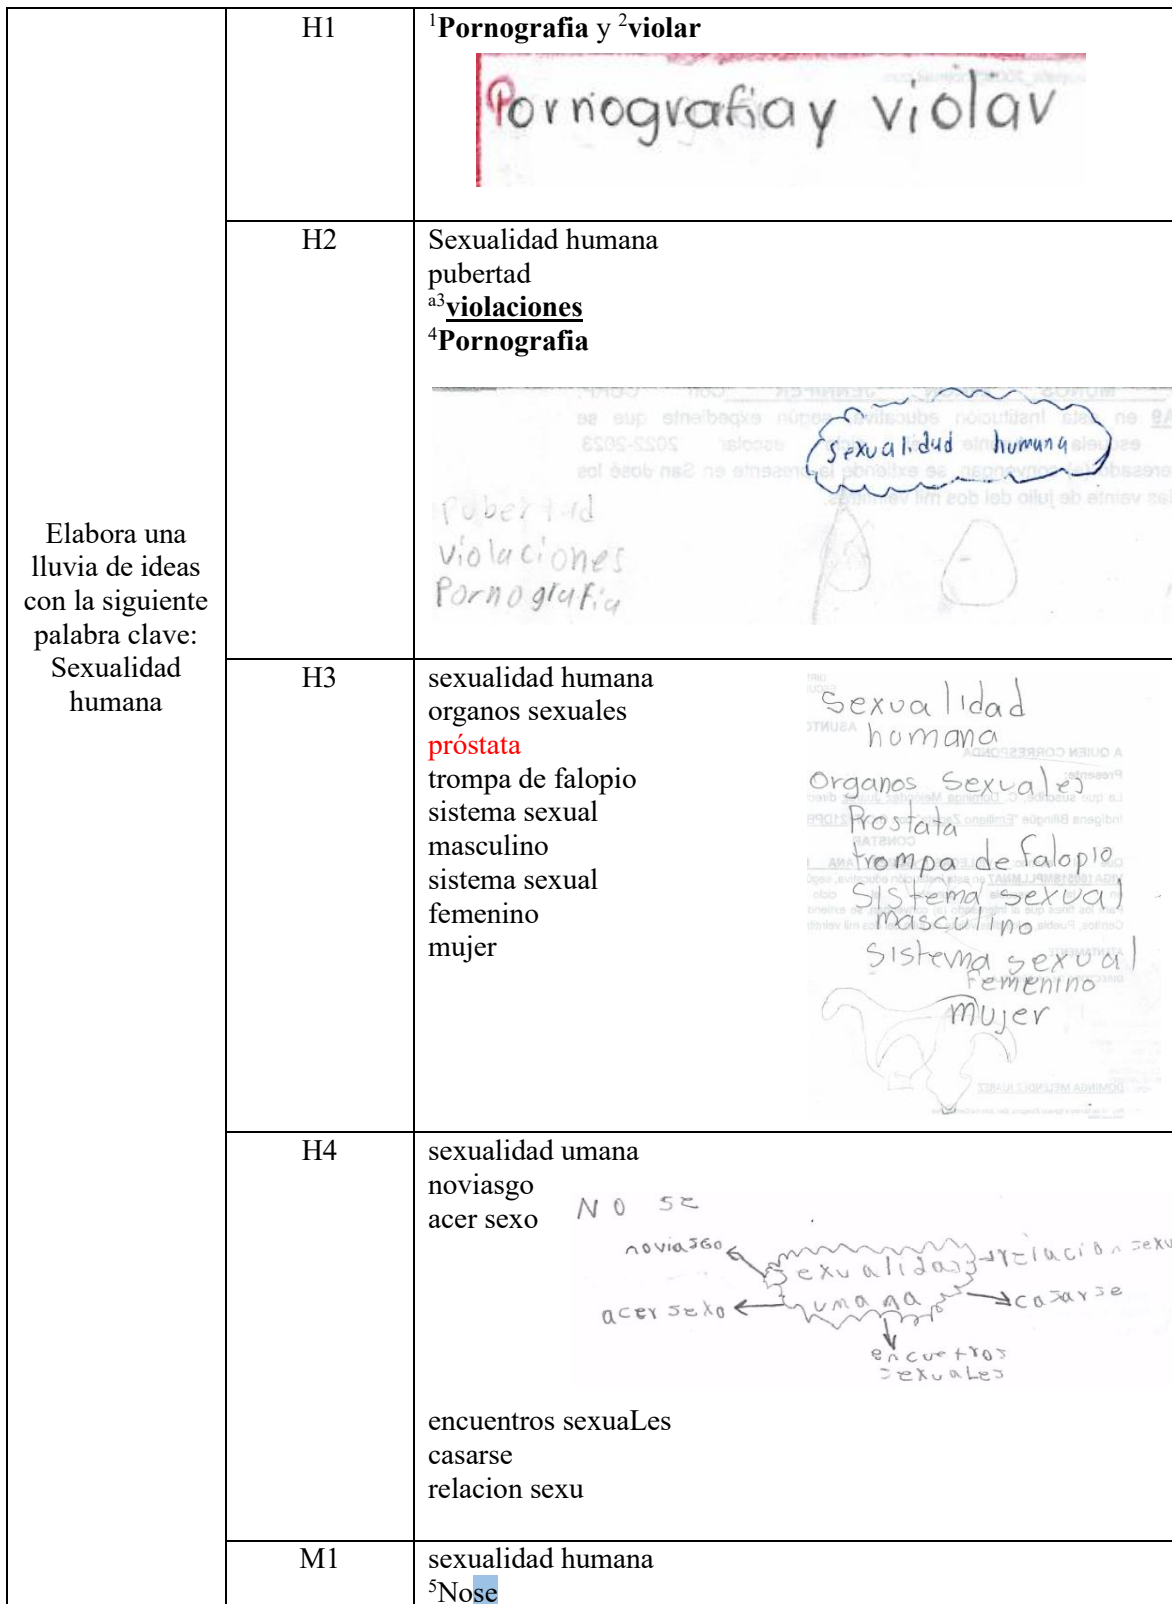 Elabora una
lluvia de ideas
con la siguiente
palabra clave:
Sexualidad
humana
H1
¹Pornografia y ²violar
Pornografia y violar
H2
Sexualidad humana
pubertad
a3violaciones
⁴Pornografia
sexualidad humana
Pubertad
violaciones
Pornografia
H3
sexualidad humana
organos sexuales
próstata
trompa de falopio
sistema sexual
masculino
sistema sexual
femenino
mujer
Sexualidad
humana
Organos sexuales
Prostata
trompa de falopio
Sistema sexual
masculino
Sistema sexual
Femenino
mujer
H4
sexualidad umana
noviasgo
acer sexo
NO SE
noviasgo
sexualidad
umana
relacion sexu
acer sexo
casarse
encuetros
sexuaLes
encuentros sexuaLes
casarse
relacion sexu
M1
sexualidad humana
⁵Nose